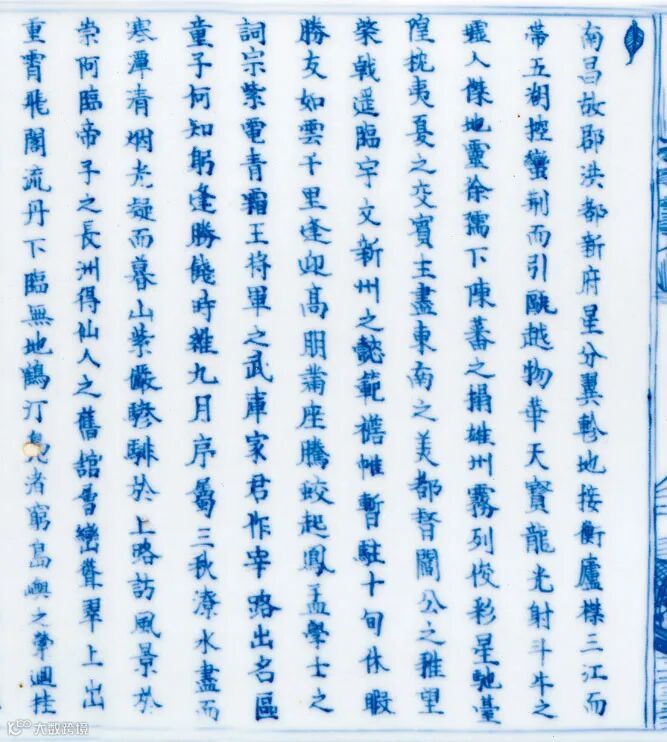 南昌故郡洪都新府星分翼軫地接衡廬襟三江而
帶五湖控蠻荊而引甌越物華天寳龍光射斗牛之
墟人傑地靈徐孺下陳蕃之榻雄州霧列俊彩星馳臺
隍枕夷夏之交賓主盡東南之美都督閻公之雅望
棨戟遥臨宇文新州之懿範襜帷暫駐十旬休暇
勝友如雲千里逢迎高朋滿座騰蛟起鳳孟學士之
詞宗紫電青霜王将軍之武庫家君作宰路出名區
童子何知躬逢勝餞時維九月序屬三秋潦水盡而
寒潭清烟光凝而暮山紫儼驂騑於上路訪風景於
崇阿臨帝子之長洲得仙人之舊舘層巒聳翠上出
重霄飛閣流丹下臨無地鶴汀鳬渚窮島嶼之縈迴桂
大数跨境